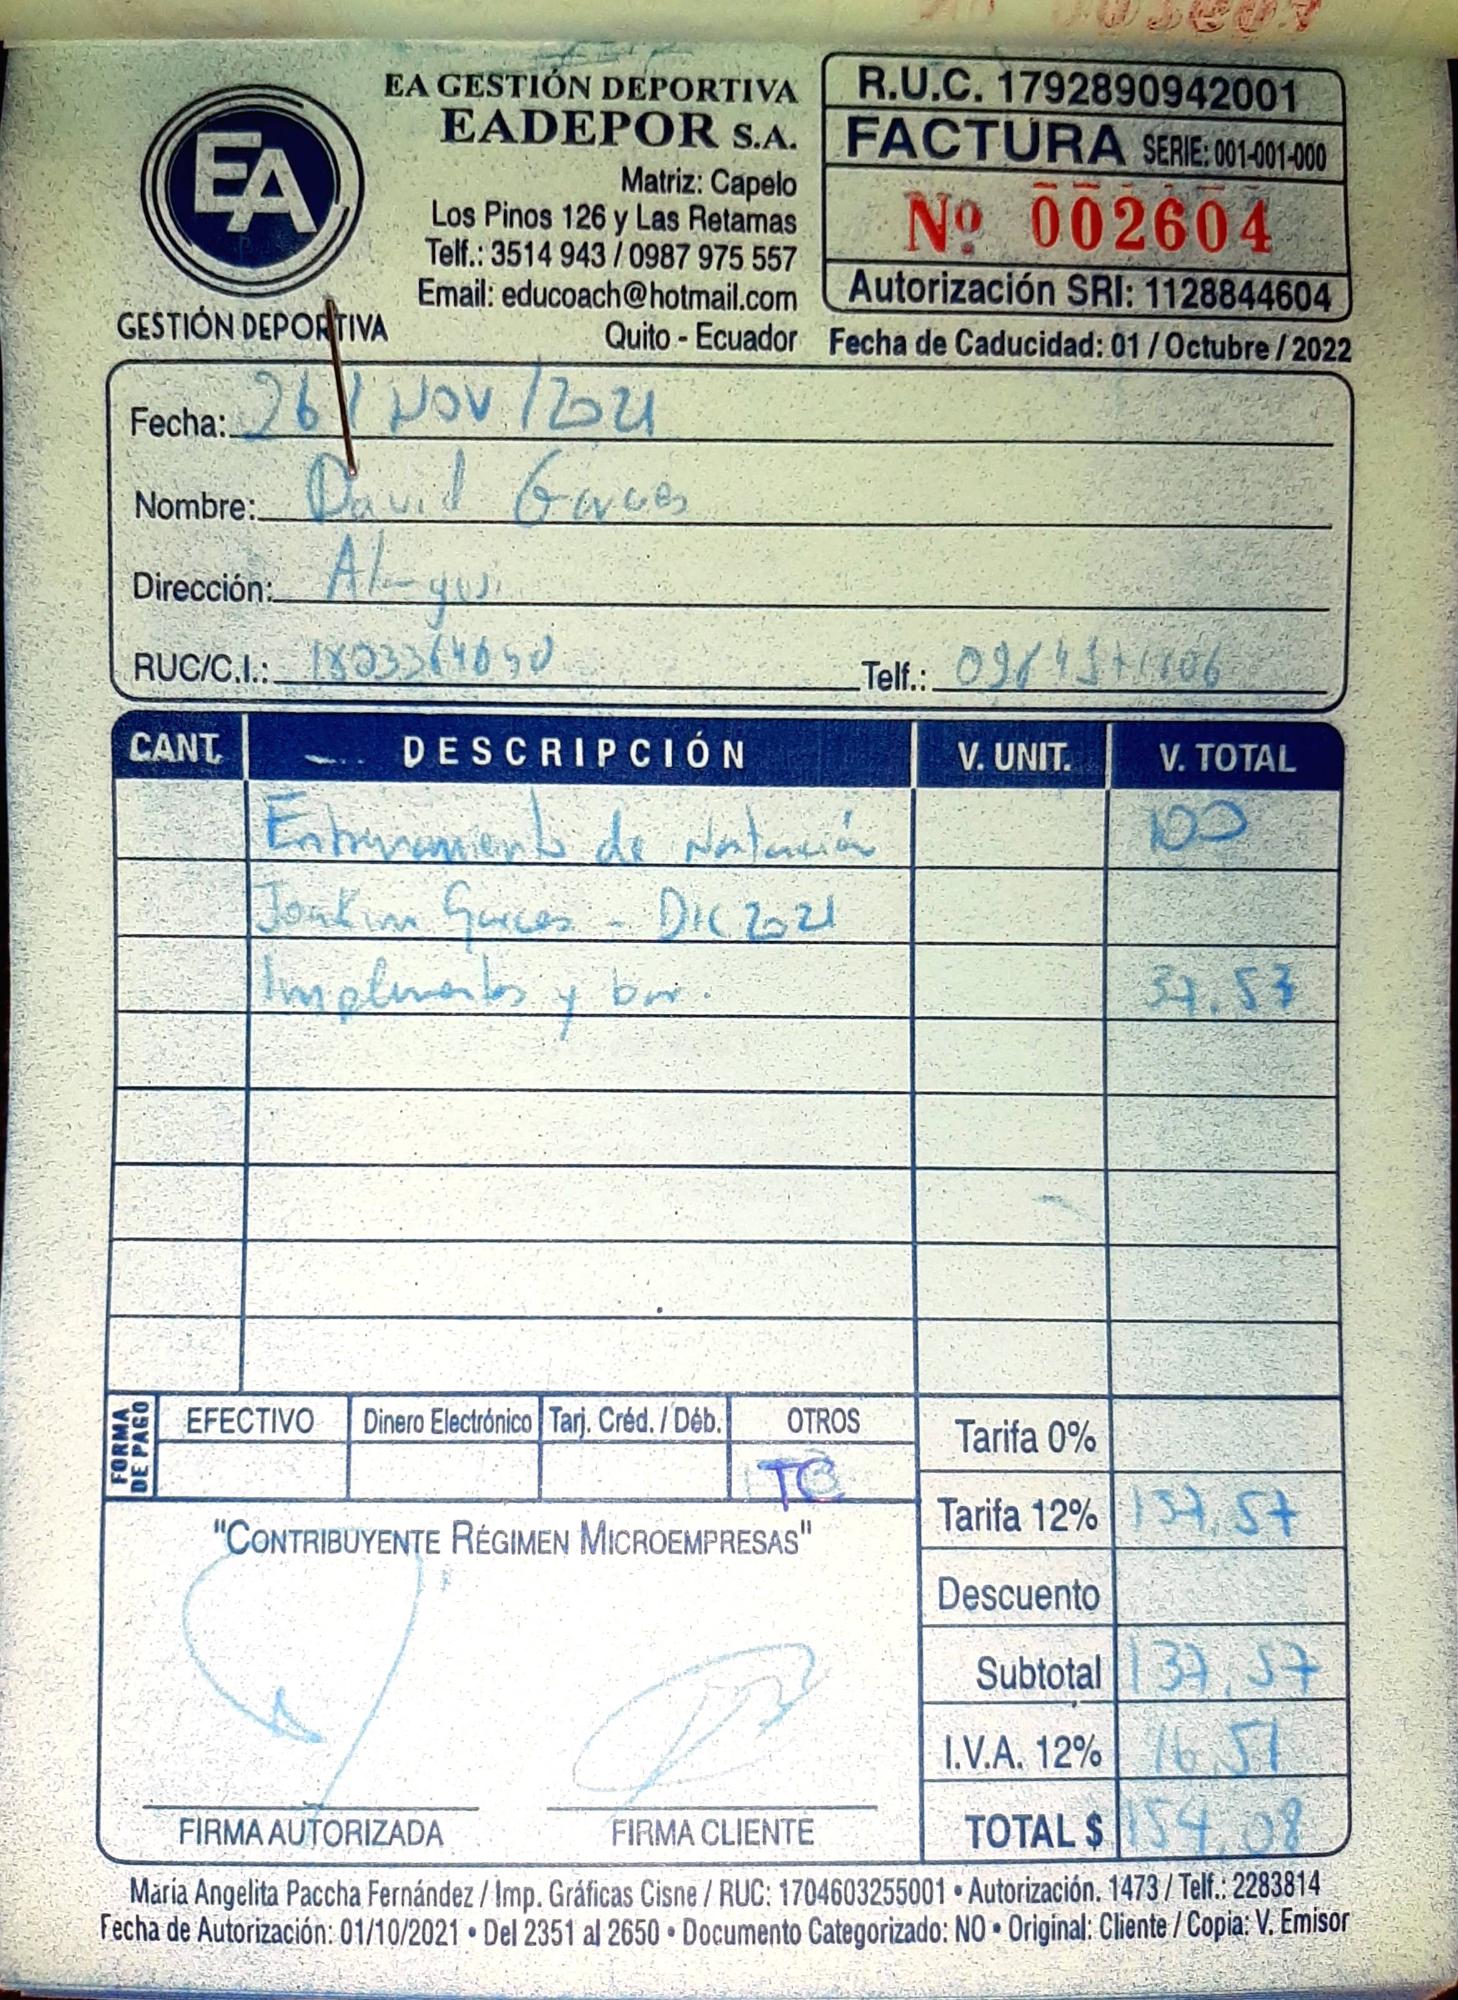 EA GESTIÓN DEPORTIVA
EADEPOR S.A.
Matriz: Capelo
Los Pinos 126 y Las Retamas
Telf.: 3514 943 / 0987 975 557
Email: educoach@hotmail.com
Quito - Ecuador
EA
GESTIÓN DEPORTIVA
R.U.C. 1792890942001
FACTURA SERIE: 001-001-000
Nº 002604
Autorización SRI: 1128844604
Fecha de Caducidad: 01 / Octubre / 2022
Fecha: 26 / Nov / 2021
Nombre: David Garces
Dirección:
RUC/C.I.:
Telf.:
CANT. DESCRIPCIÓN V. UNIT. V. TOTAL
Entrenamiento de Natación 100
Joakim Garces - Dic 2021
Implementos y bar. 37.57
FORMA DE PAGO EFECTIVO Dinero Electrónico Tarj. Créd. / Déb. OTROS
TC
Tarifa 0%
Tarifa 12% 137,57
Descuento
Subtotal 137,57
I.V.A. 12% 16,51
TOTAL $ 154,08
"CONTRIBUYENTE RÉGIMEN MICROEMPRESAS"
FIRMA AUTORIZADA FIRMA CLIENTE
María Angelita Paccha Fernández / Imp. Gráficas Cisne / RUC: 1704603255001 • Autorización. 1473 / Telf.: 2283814
Fecha de Autorización: 01/10/2021 • Del 2351 al 2650 • Documento Categorizado: NO • Original: Cliente / Copia: V. Emisor